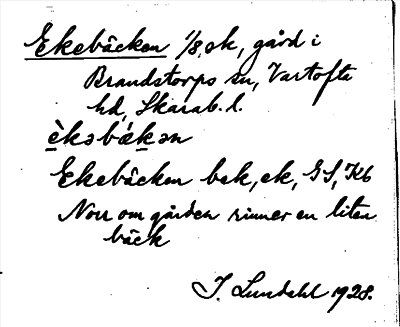 Ekebäcken 1/8, ek, gård i
Brandstorps sn, Vartofta
hd, Skarab. l.
èkəbǽkən
Ekebäcken bek, ek, GS, Kb
Norr om gården rinner en liten
bäck
I. Lundahl 1928.